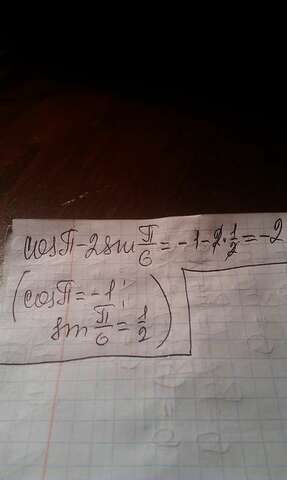 cosπ-2sin π/6 = -1-2·1/2 = -2
(cosπ = -1;
sin π/6 = 1/2)